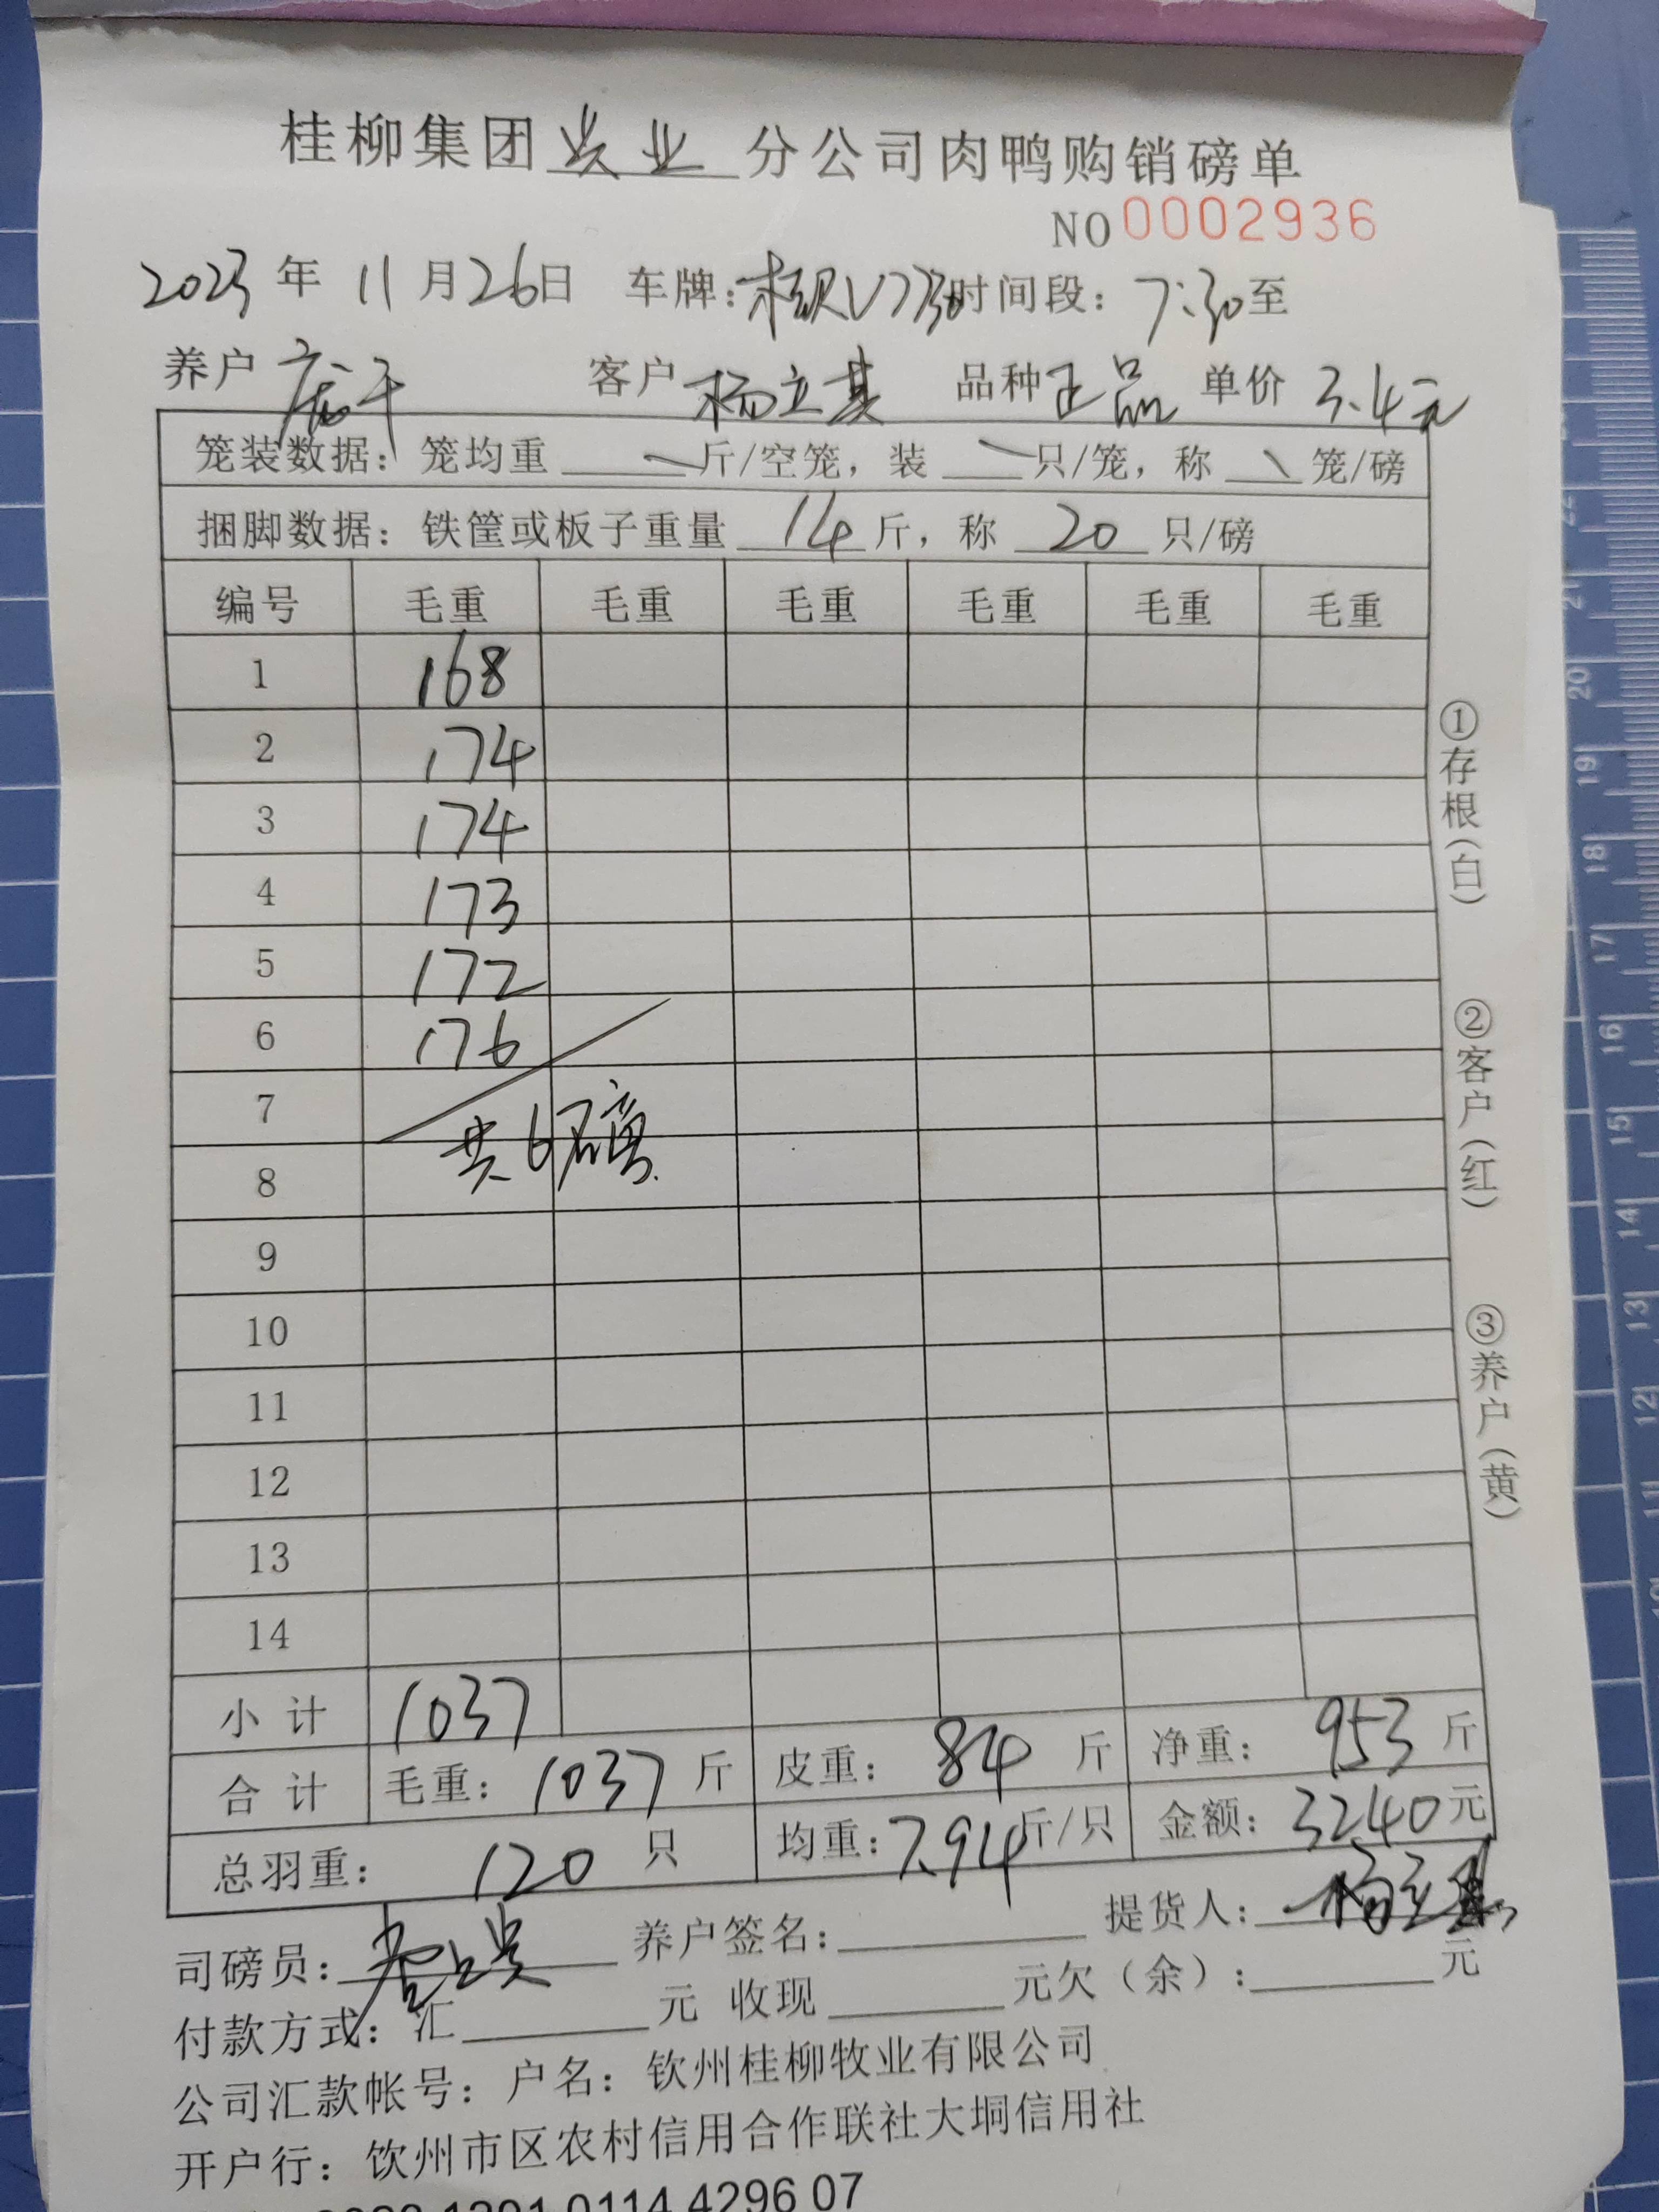 桂柳集团 业 分公司肉鸭购销磅单
NO 0002936
2023年 11月26日 车牌: 时间段: 7:30至
养户 庞干 客户 杨立基 品种 正品 单价 3.4元
笼装数据: 笼均重 斤/空笼, 装 只/笼, 称 笼/磅
捆脚数据: 铁筐或板子重量 14 斤, 称 20 只/磅
编号 毛重 毛重 毛重 毛重 毛重 毛重
1 168
2 174
3 174
4 173
5 172
6 176
7
共6磅
8
9
10
11
12
13
14
小计 1037
合计 毛重: 1037 斤 皮重: 84 斤 净重: 953 斤
总羽重: 120 只 均重: 7.94斤/只 金额: 3240元
司磅员: 养户签名: 提货人: 杨立基
付款方式: 汇 元 收现 元欠(余): 元
公司汇款帐号: 户名: 钦州桂柳牧业有限公司
开户行: 钦州市区农村信用合作联社大垌信用社
0114 4296 07
①存根(白) ②客户(红) ③养户(黄)
21
20
19
18
17
16
15
14
13
12
11